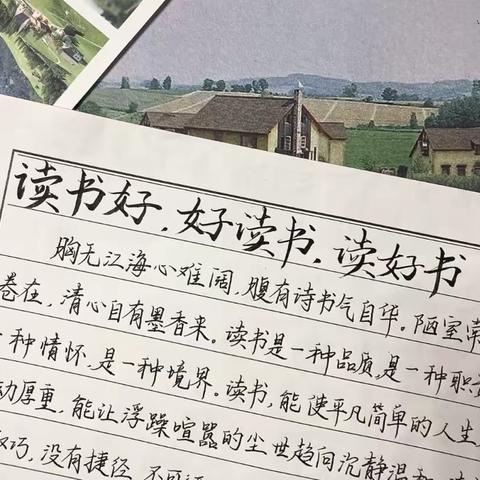 读书好，好读书，读好书
胸无江海心难阔，腹有诗书气自华。陋室常
卷在，清心自有墨香来。读书是一种品质，是一种职责
一种情怀，是一种境界。读书，能使平凡简单的人生
动厚重，能让浮躁喧嚣的尘世趋向沉静温和
巧，没有捷径，不可